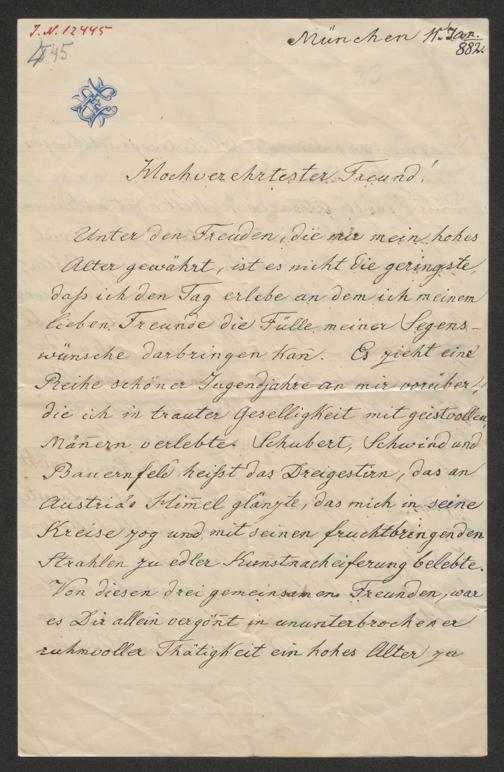 J. N. 12445
45
München 11. Jan.
882.
Hochverehrtester Freund!
Unter den Freuden, die mir mein hohes
Alter gewährt, ist es nicht die geringste
daß ich den Tag erlebe an dem ich meinem
lieben Freunde die Fülle meiner Segens-
wünsche darbringen kan̄. Es zieht eine
Reihe schöner Jugendjahre an mir vorüber,
die ich in trauter Geselligkeit mit geistvollen
Män̄ern verlebte. Schubert, Schwind und
Bauernfeld heißt das Dreigestirn, das an
Austria's Him̄el glänzte, das mich in seine
Kreise zog und mit seinen fruchtbringenden
Strahlen zu edler Kunstnacheiferung belebte.
Von diesen drei gemeinsamen Freunden, war
es Dir allein vergön̄t in ununterbrochener
ruhmvoller Thätigkeit ein hohes Alter zu